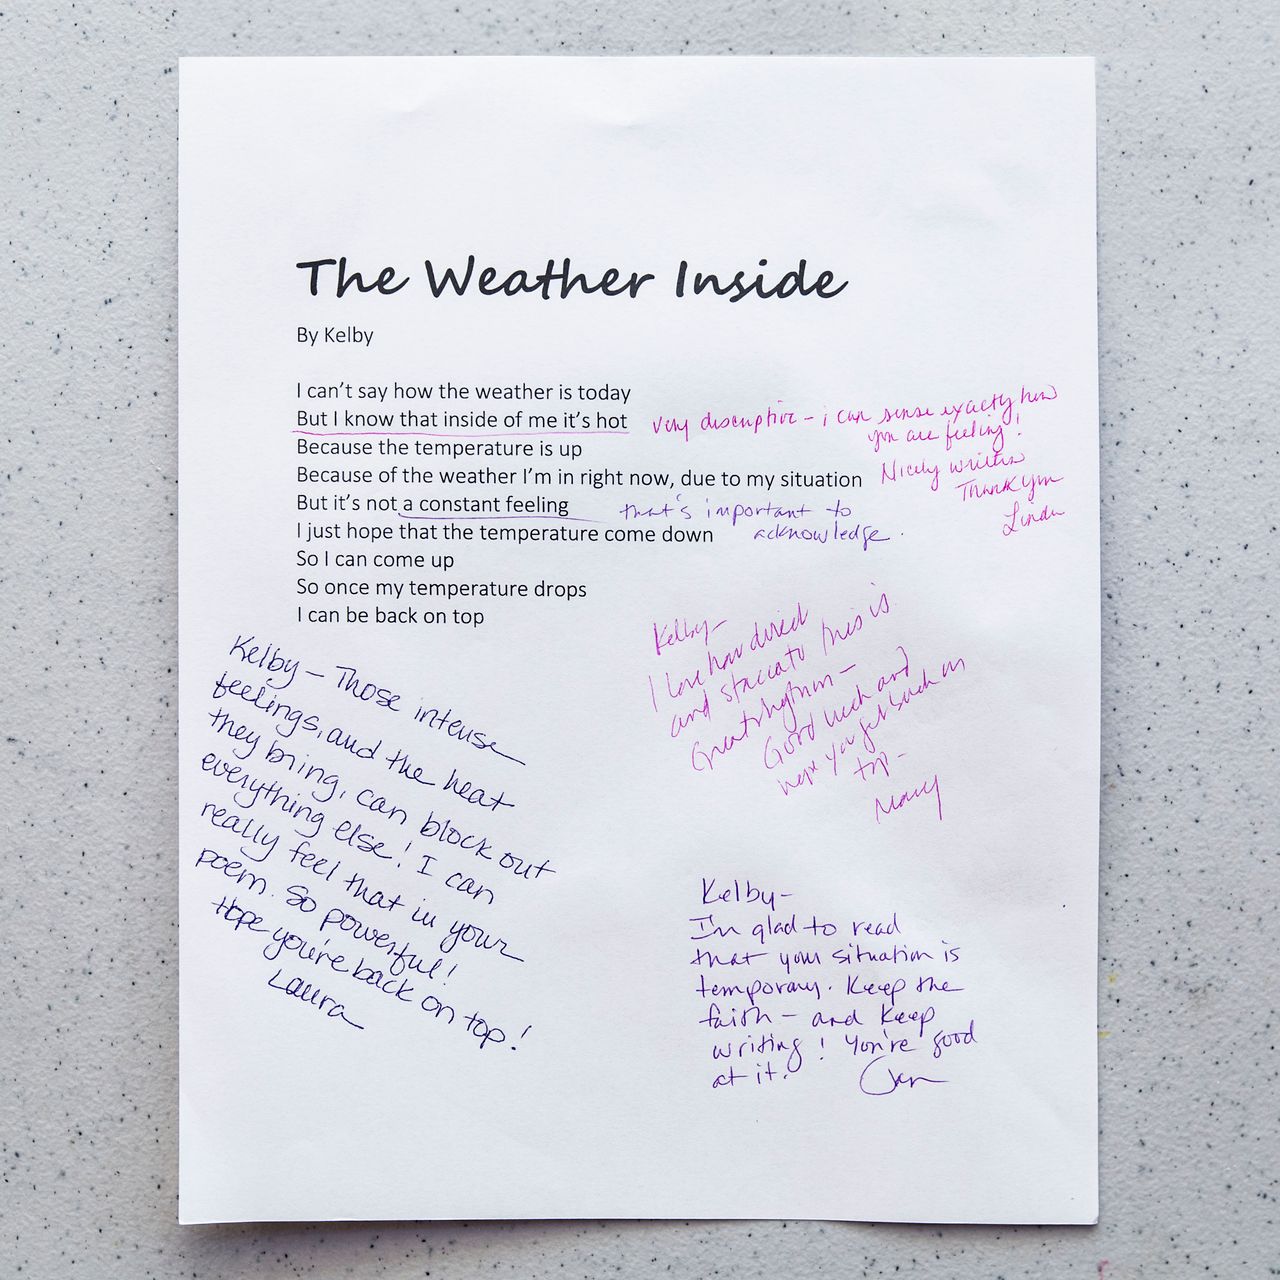 The Weather Inside
By Kelby
I can't say how the weather is today
But I know that inside of me it's hot
very descriptive - i can sense exactly how
you are feeling!
Nicely written
Thank you
Linda
Because the temperature is up
Because of the weather I'm in right now, due to my situation
But it's not a constant feeling
that's important to
acknowledge.
I just hope that the temperature come down
So I can come up
So once my temperature drops
I can be back on top
Kelby - Those intense
feelings, and the heat
they bring, can block out
everything else! I can
really feel that in your
poem. So powerful!
Hope you're back on top!
Laura
Kelby-
I love how direct
and staccato this is.
Great rhythm -
Good luck and
hope you get back on
top -
Kelby-
I'm glad to read
that your situation is
temporary. Keep the
faith - and keep
writing! You're good
at it.
Jan